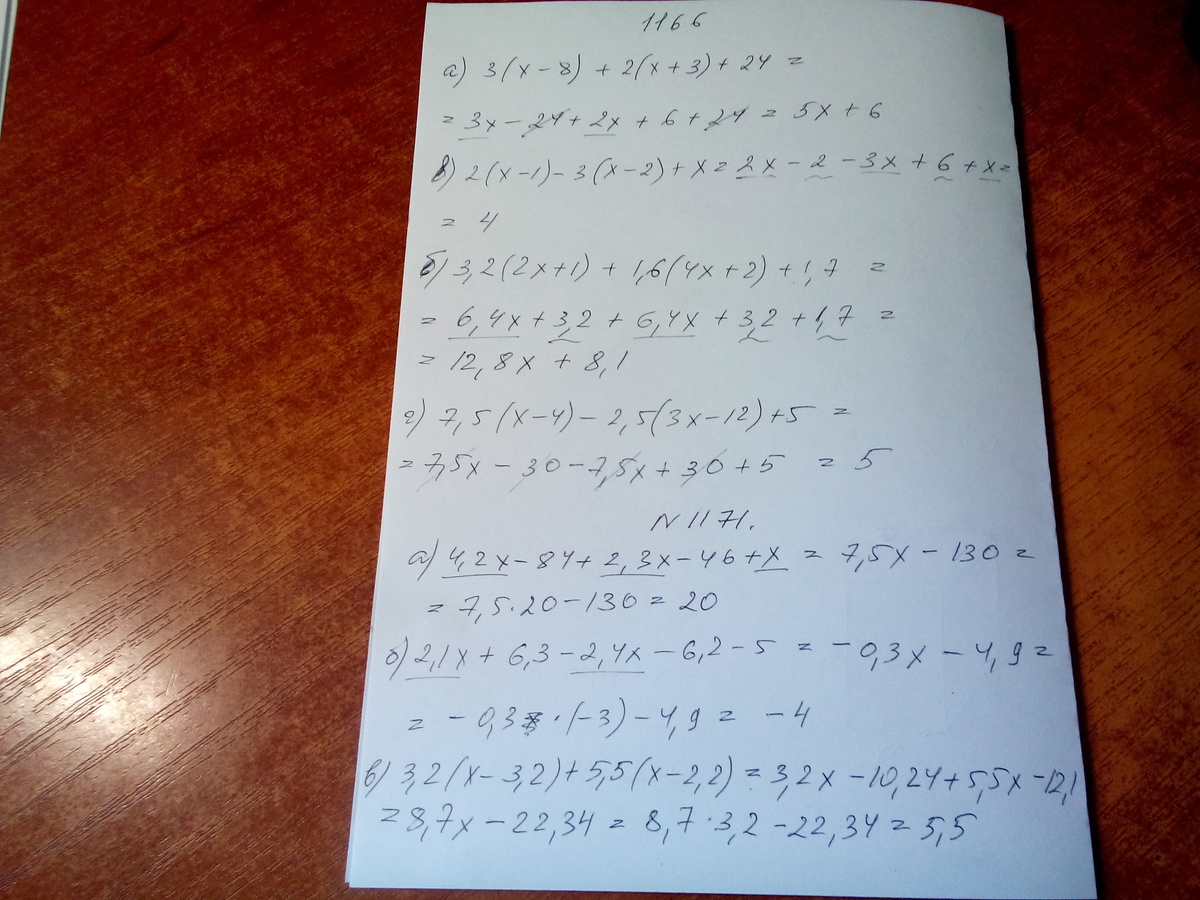 1166
а) 3(x-8) + 2(x+3) + 24 =
= 3x - 24 + 2x + 6 + 24 = 5x + 6
в) 2(x-1) - 3(x-2) + x = 2x - 2 - 3x + 6 + x =
= 4
б) 3,2(2x+1) + 1,6(4x+2) + 1,7 =
= 6,4x + 3,2 + 6,4x + 3,2 + 1,7 =
= 12,8x + 8,1
г) 7,5(x-4) - 2,5(3x-12) + 5 =
= 7,5x - 30 - 7,5x + 30 + 5 = 5
N 1171.
а) 4,2x - 84 + 2,3x - 46 + x = 7,5x - 130 =
= 7,5·20 - 130 = 20
б) 2,1x + 6,3 - 2,4x - 6,2 - 5 = -0,3x - 4,9 =
= -0,3 · (-3) - 4,9 = -4
в) 3,2(x-3,2) + 5,5(x-2,2) = 3,2x - 10,24 + 5,5x - 12,1
= 8,7x - 22,34 = 8,7·3,2 - 22,34 = 5,5